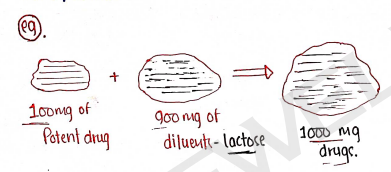 eg.
+
100mg of
Potent drug
900 mg of
diluents - lactose
1000 mg
drugs.